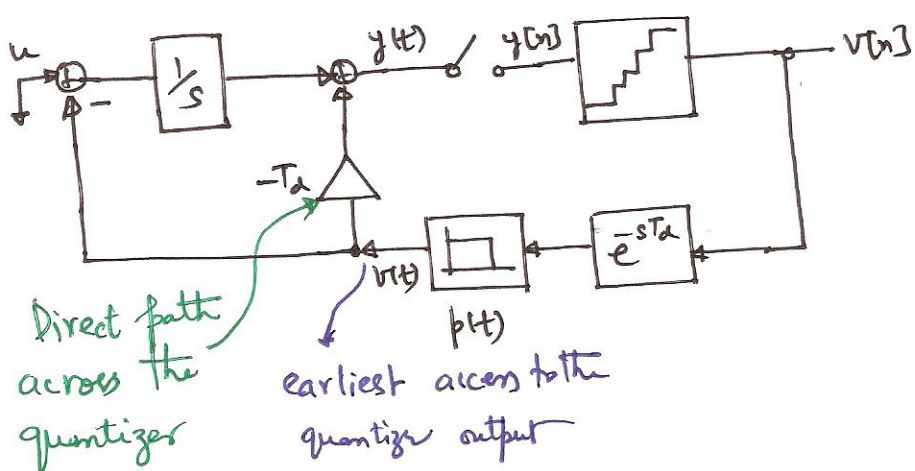 u
1/s
y(t)
y[n]
v[n]
-Td
e^-sTd
v(t)
p(t)
Direct path
across the
quantizer
earliest access to the
quantize output